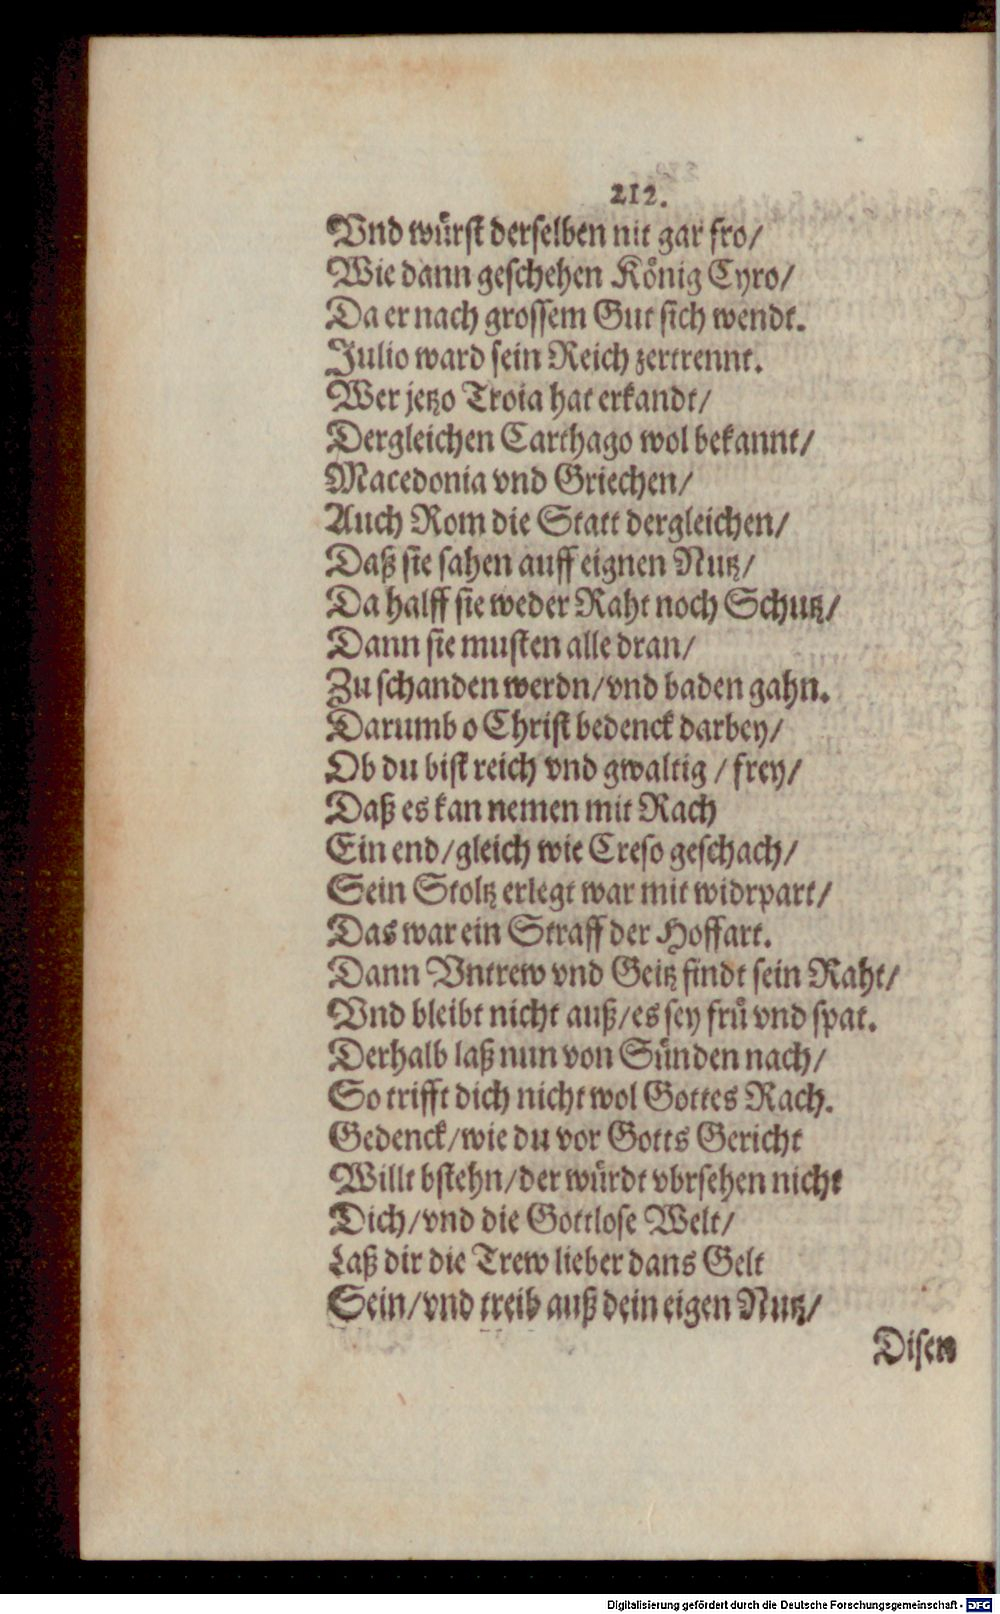 212.
Vnd wuͤrst derselben nit gar fro/
Wie dann geschehen Koͤnig Cyro/
Da er nach grossem Gut sich wendt.
Julio ward sein Reich zertrennt.
Wer jetzo Troia hat erkandt/
Dergleichen Carthago wol bekannt/
Macedonia vnd Griechen/
Auch Rom die Statt dergleichen/
Daß sie sahen auff eignen Nutz/
Da halff sie weder Raht noch Schutz/
Dann sie musten alle dran/
Zu schanden werdn/vnd baden gahn.
Darumb o Christ bedenck darbey/
Ob du bist reich vnd gwaltig / frey/
Daß es kan nemen mit Rach
Ein end/gleich wie Creso geschach/
Sein Stoltz erlegt war mit widrpart/
Das war ein Straff der Hoffart.
Dann Vntrew vnd Geitz findt sein Raht/
Vnd bleibt nicht auß/es sey fruͤ vnd spat.
Derhalb laß nun von Suͤnden nach/
So trifft dich nicht wol Gottes Rach.
Gedenck/wie du vor Gotts Gericht
Willt bstehn/der wuͤrdt vbrsehen nicht
Dich/vnd die Gottlose Welt/
Laß dir die Trew lieber dans Gelt
Sein/vnd treib auß dein eigen Nutz/
Disen
Digitalisierung gefördert durch die Deutsche Forschungsgemeinschaft - DFG